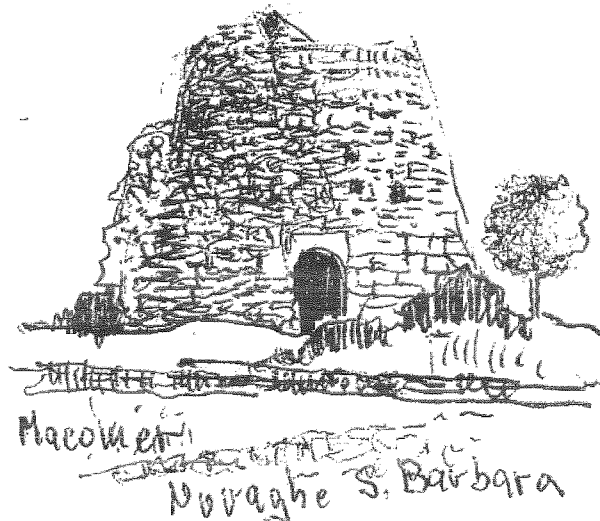 Macomer
Nuraghe S. Barbara